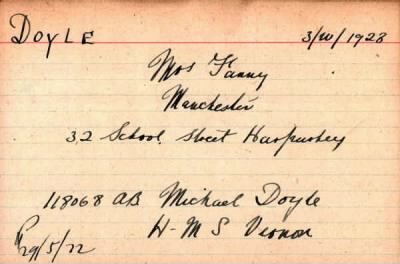 DOYLE 3/10/1928
Mrs Fanny
Manchester
32 School Street Harpurhey
118068 AB Michael Doyle
H-M S Vernon
29/5/22